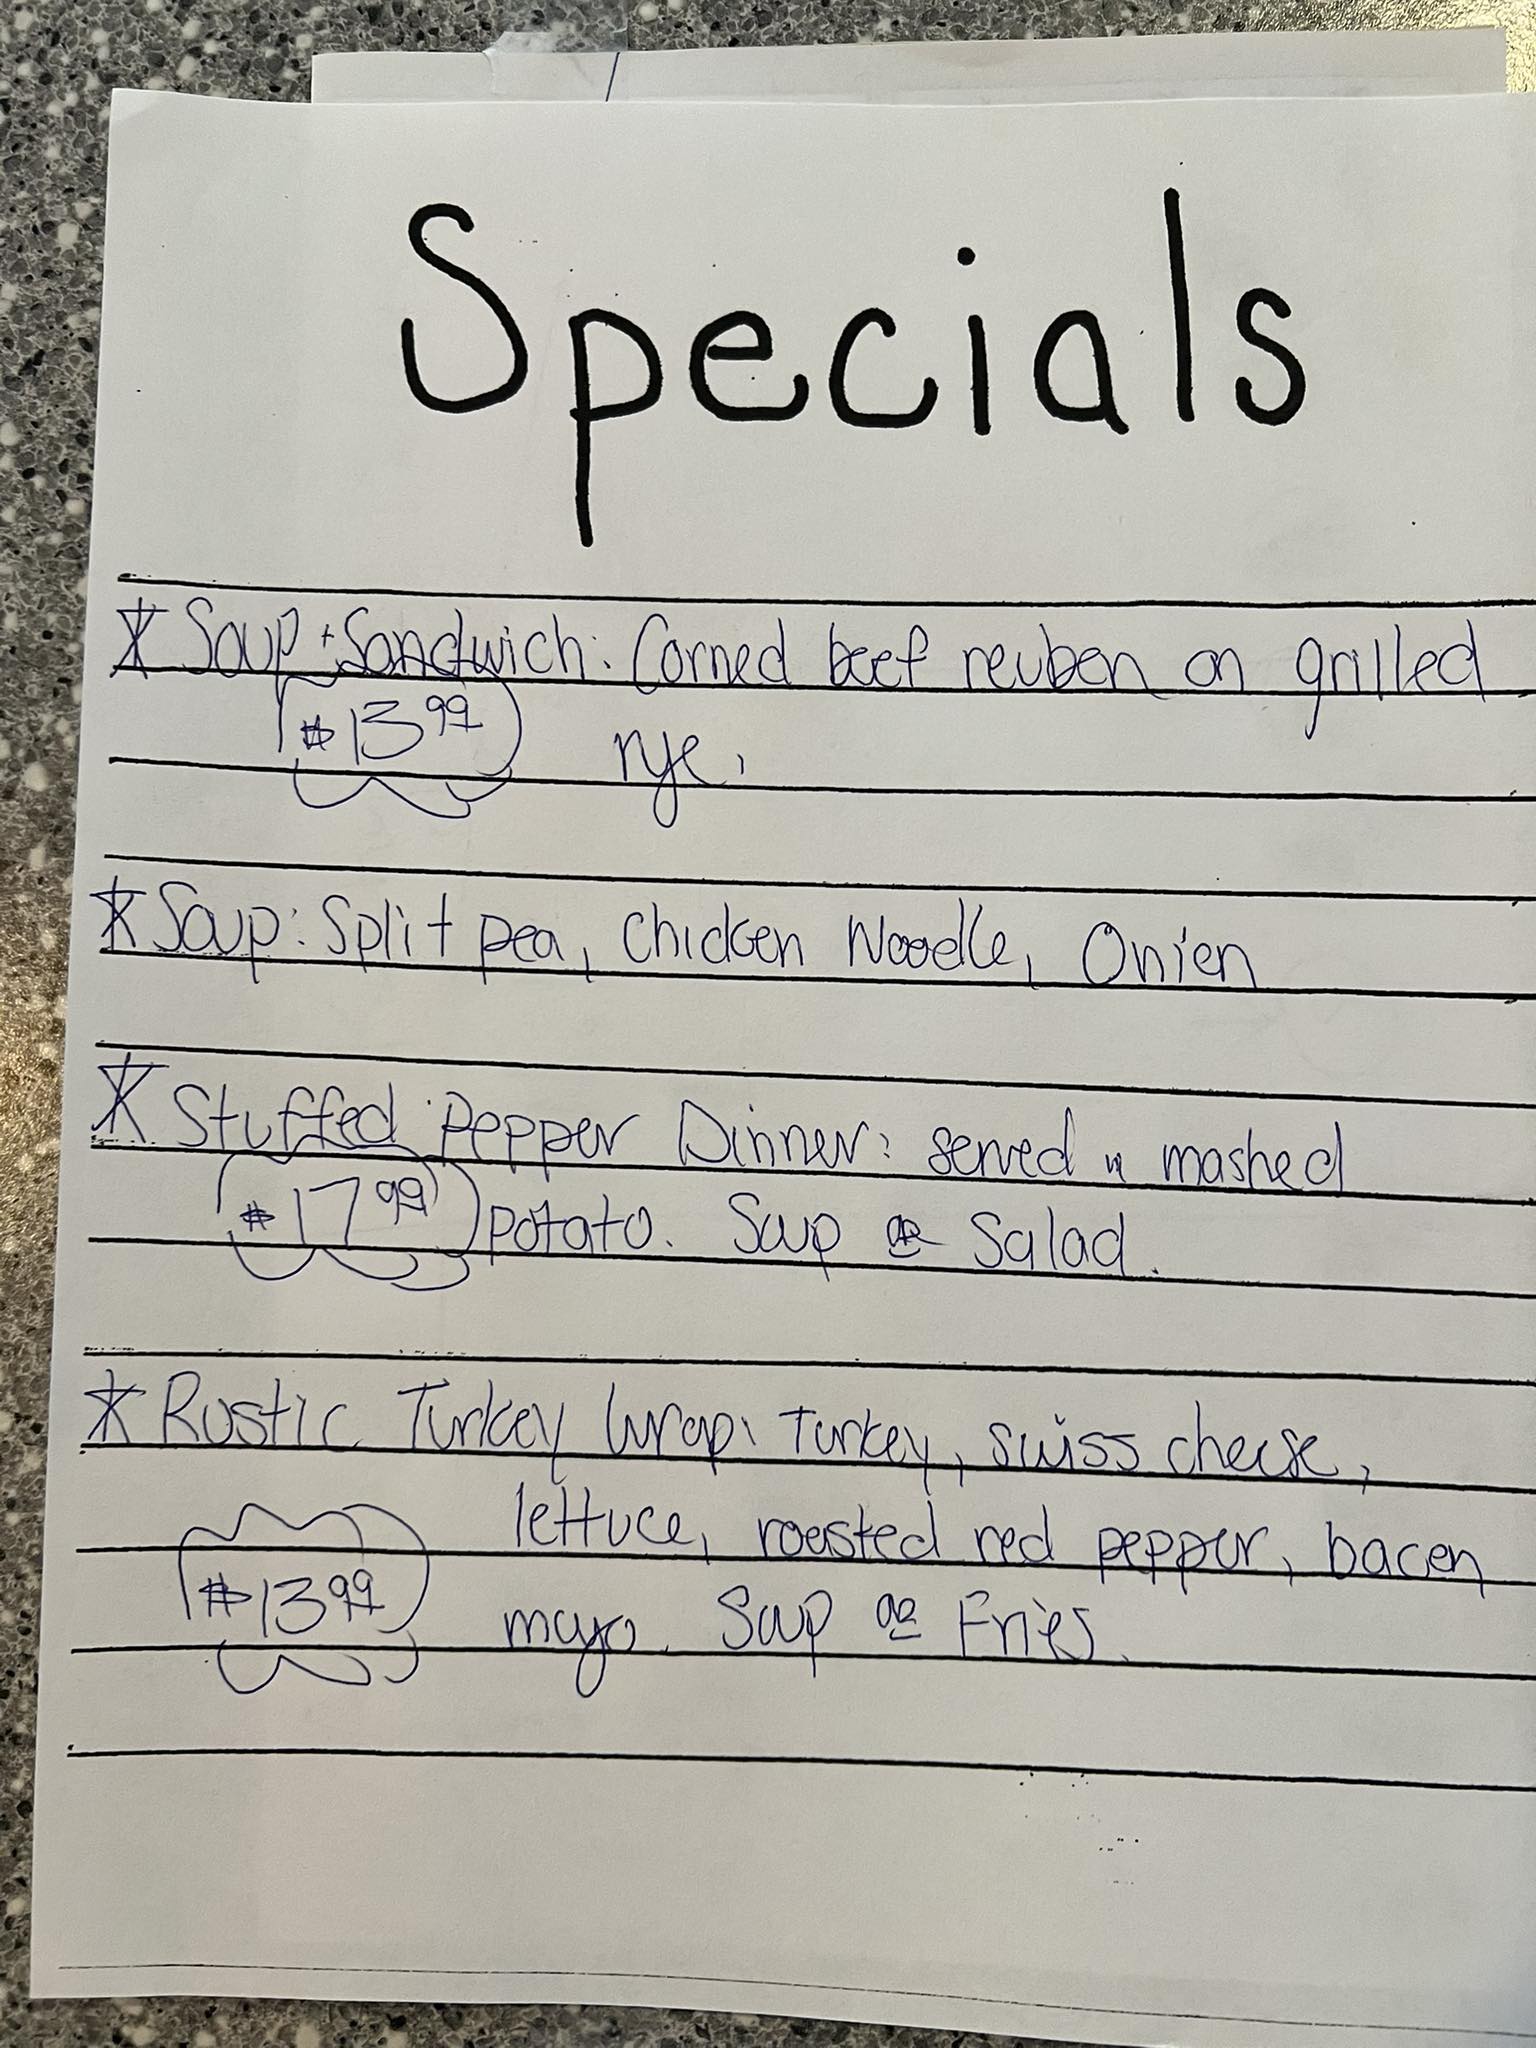 Specials
* Soup + Sandwich: Corned beef reuben on grilled
$13.99 rye.
* Soup: Split pea, Chicken Noodle, Onion
* Stuffed Pepper Dinner: served w mashed
$17.99 potato. Soup or Salad.
* Rustic Turkey Wrap: Turkey, swiss cheese,
lettuce, roasted red pepper, bacon
$13.99 mayo. Soup or Fries.